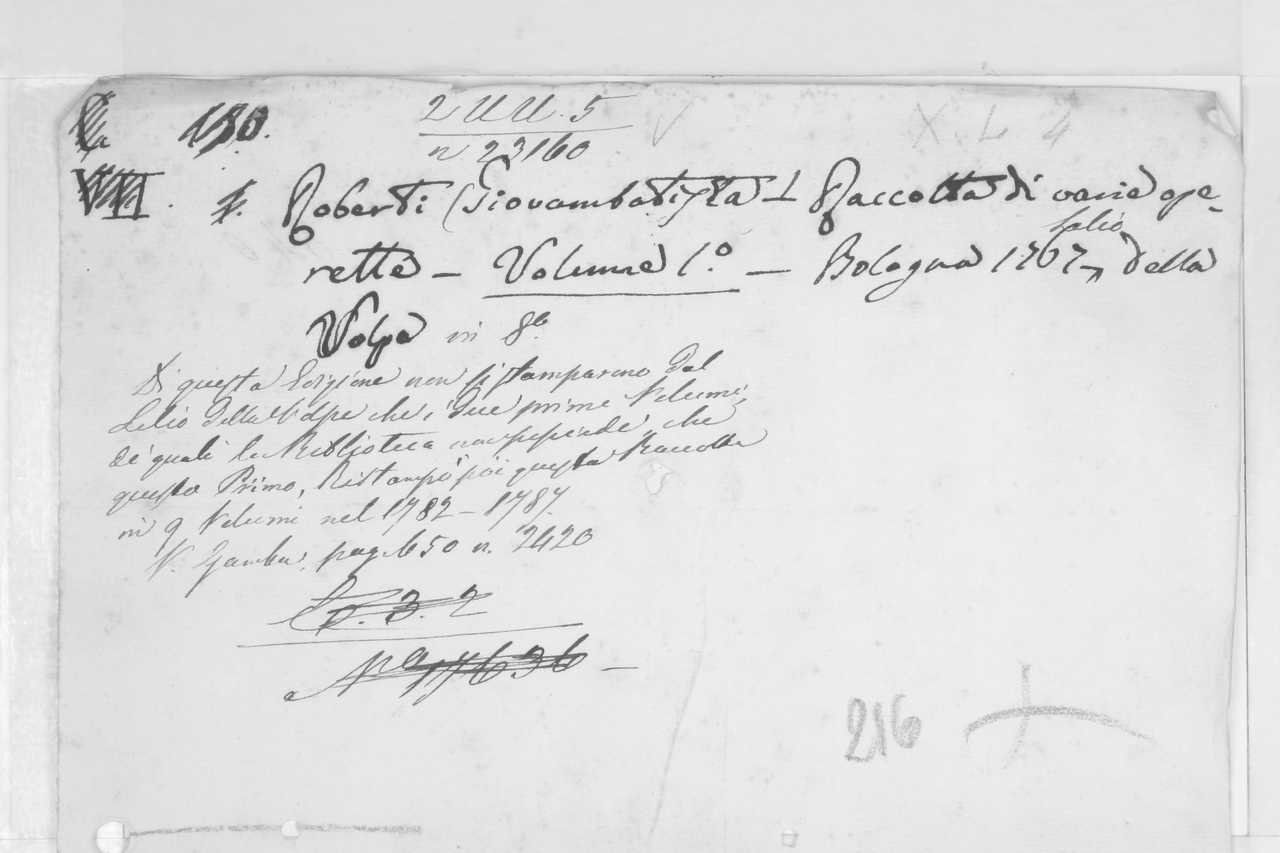 130.
2 UU. 5
n 23160
X. L 4
VII. Roberti (Giovambatista ⊥ Raccolta di varie ope-
rette – Volume 1.º – Bologna 1767 Lelio della
Volpe in 8º
Di questa Edizione non si stamparono dal
Lelio Della Volpe che i due primi Volumi,
de' quali la Biblioteca non possiede che
questo Primo, Ristampò poi questa Raccolta
in 9 Volumi nel 1782 – 1787.
V. Gamba, pag. 650 n. 2420
D. 3. 2
Nº 17636 –
216